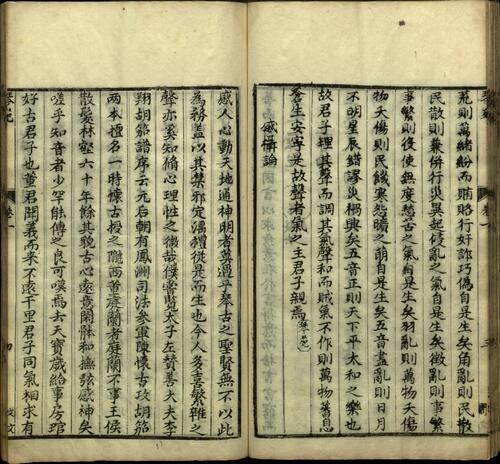 荒則萬緒紛而賄賂行奸詐巧偽自是生矣角亂則民散
民散則兼併行災異起侵亂之氣自是生矣徵亂則事繁
事繁則役使無度愁苦之氣自是生矣羽亂則萬物天傷
物天傷則民饑寒怨曠之萌自是生矣五音盡亂則日月
不明星辰錯謬災禍興矣五音正則天下平太和之樂也
故君子理其聲而調其氣聲和而賊氣不作則萬物蕃息
蒼生安寧是故聲者氣之主君子親焉
感儔論
感人心動天地通神明者莫過乎琴古之聖賢無不以此
為務蓋以其禁邪定淫禮從是而生也今人多喜繁雜之
聲亦奚知脩心理性之徵哉僕嘗覽太子左贊善大夫李
翔胡笳譜序云元后朝有鳳洲司法參軍陳懷古攻胡笳
兩本擅名一時懷古授之隴西董庭蘭者庭蘭不事王侯
散髮林壑六十年餘其貌古心遠意閑體和撫弦感神矣
嗟乎知音者少罕能傳之良可嘆焉去天寶歲給事房琯
好古君子也董君聞義而來不遠千里君子同氣相求有
琴苑
卷一